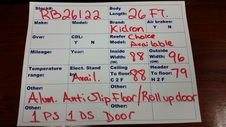 Stock#: RB26122 Body Length: 26 FT.
Brand: Kidron Air brakes: Y N
Gvw: CDL: Y N Reefer Model Choice Available
Mileage: Year: Inside Width: 88 Outside Width: 96
Temperature range: Elect. Stand by Avail. Ceiling To floor: 88 Header To floor: 79
C 2 F C 2 F
Other:
Alum. Anti Slip Floor/Rollup door
Other: Other:
1 PS 1 DS Door